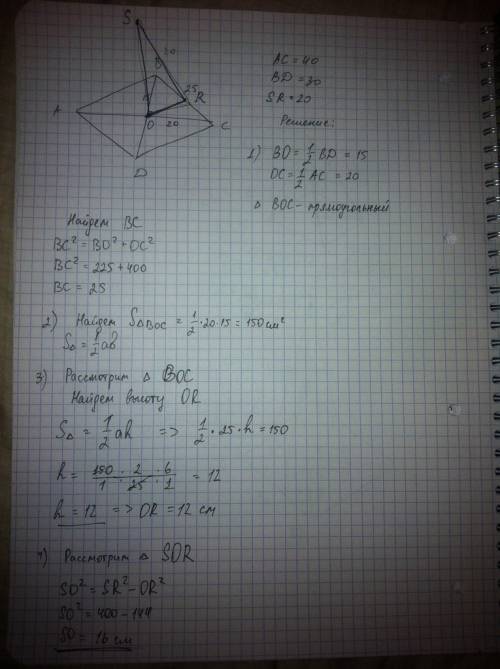 S
20
B
25
R
A
O
20
C
D
AC = 40
BD = 30
SR = 20
Решение:
1) BO = 1/2 BD = 15
OC = 1/2 AC = 20
△ BOC - прямоугольный
Найдем BC
BC² = BO² + OC²
BC² = 225 + 400
BC = 25
2) Найдем S△BOC = 1/2 · 20 · 15 = 150 см²
S△ = 1/2 ab
3) Рассмотрим △ BOC
Найдем высоту OR
S△ = 1/2 ah => 1/2 · 25 · h = 150
h = 150 · 2 · 6 / 1 · 25 · 1 = 12
h = 12 => OR = 12 см
4) Рассмотрим △ SOR
SO² = SR² - OR²
SO² = 400 - 144
SO = 16 см